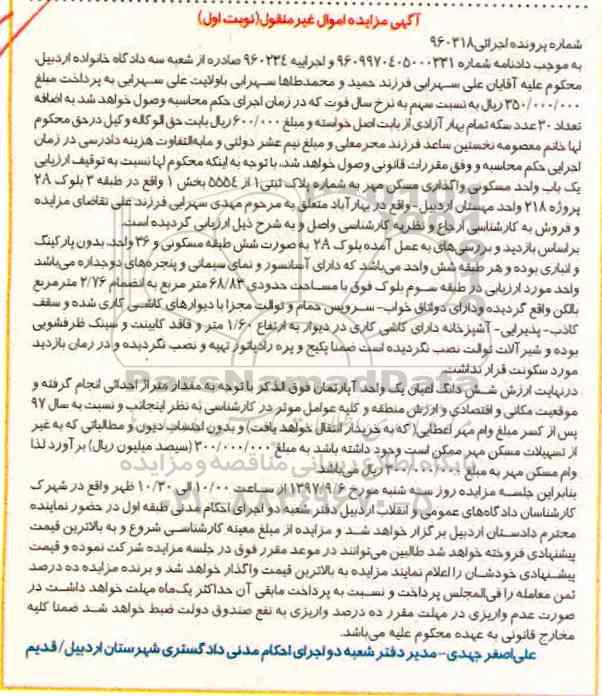 آگهی مزایده اموال غیر منقول(نوبت اول)
شماره پرونده اجرائی۹۶۰۳۱۸
به موجب دادنامه شماره ۹۶۰۹۹۷۰۴۰۵۰۰۰۲۳۱ و اجراییه ۹۶۰۲۳۴ صادره از شعبه سه دادگاه خانواده اردبیل،
محکوم علیه آقایان علی سهرابی فرزند حمید و محمدطاها سهرابی باولایت علی سهرابی به پرداخت مبلغ
۳۵۰/۰۰۰/۰۰۰ ریال به نسبت سهم به نرخ سال فوت که در زمان اجرای حکم محاسبه وصول خواهد شد به اضافه
تعداد ۳۰ عدد سکه تمام بهار آزادی از بابت اصل خواسته و مبلغ ۶۰۰/۰۰۰ ریال بابت حق الوکاله وکیل درحق محکوم
لها خانم معصومه نخستین ساعد فرزند محرمعلی و مبلغ نیم عشر دولتی و مابه‌التفاوت هزینه دادرسی در زمان
اجرایی حکم محاسبه و وفق مقررات قانونی وصول خواهد شد، با توجه به اینکه محکوم لها نسبت به توقیف ارزیابی
یک باب واحد مسکونی واگذاری مسکن مهر به شماره پلاک ثبتی۱ از ۵۵۵۴ بخش ۱ واقع در طبقه ۳ بلوک ۲۸
پروژه ۲۱۸ واحد مهستان اردبیل- واقع در بهارآباد متعلق به مرحوم مهدی سهرابی فرزند علی تقاضای مزایده
و فروش به کارشناسی ارجاع و نظریه کارشناسی واصل و به شرح ذیل ارزیابی گردیده است.
براساس بازدید و بررسی‌های به عمل آمده بلوک ۲۸ به صورت شش طبقه مسکونی و ۳۶ واحد، بدون پارکینگ
و انباری بوده و هر طبقه شش واحد می‌باشد که دارای آسانسور و نمای سیمانی و پنجره‌های دوجداره می‌باشد
واحد مورد ارزیابی در طبقه سوم بلوک فوق با مساحت حدودی ۶۸/۸۳ متر مربع به انضمام ۲/۷۶ مترمربع
بالکن واقع گردیده ودارای دواتاق خواب- سرویس حمام و توالت مجزا با دیوارهای کاشی کاری شده و سقف
کاذب- پذیرایی- آشپزخانه دارای کاشی کاری در دیوار به ارتفاع ۱/۶۰ متر و فاقد کابینت و سینک ظرفشویی
بوده و شیرآلات توالت نصب نگردیده است ضمنا پکیج و پره رادیاتور تهیه و نصب نگردیده و در زمان بازدید
مورد سکونت قرار نداشت.
درنهایت ارزش شش دانگ اعیان یک واحد آپارتمان فوق الذکر با توجه به مقدار متراژ احداثی انجام گرفته و
موقعیت مکانی و اقتصادی و ارزش منطقه و کلیه عوامل موثر در کارشناسی به نظر اینجانب و نسبت به سال ۹۷
پس از کسر مبلغ وام مهر اعطایی( که به خریدار انتقال خواهد یافت) و بدون احتساب دیون و مطالباتی که به غیر
از تسهیلات مسکن مهر ممکن است وجود داشته باشد به مبلغ ۳۰۰/۰۰۰/۰۰۰ (سیصد میلیون ریال) برآورد لذا
وام مسکن مهر به مبلغ ۲۰۰/۰۰۰/۰۰۰ ریال می‌باشد.
بنابراین جلسه مزایده روز سه شنبه مورخ ۱۳۹۷/۹/۶ از ساعت ۱۰/۰۰ الی ۱۰/۳۰ ظهر واقع در شهرک
کارشناسان دادگاه‌های عمومی و انقلاب اردبیل دفتر شعبه دو اجرای احکام مدنی طبقه اول در حضور نماینده
محترم دادستان اردبیل برگزار خواهد شد و مزایده از مبلغ معینه کارشناسی شروع و به بالاترین قیمت
پیشنهادی فروخته خواهد شد طالبین می‌توانند در موعد مقرر فوق در جلسه مزایده شرکت نموده و قیمت
پیشنهادی خودشان را اعلام نمایند مزایده به بالاترین قیمت واگذار خواهد شد و برنده مزایده ده درصد
ثمن معامله را فی‌المجلس پرداخت و نسبت به پرداخت مابقی آن حداکثر یک‌ماه مهلت خواهد داشت در
صورت عدم واریزی در مهلت مقرر ده درصد واریزی به نفع صندوق دولت ضبط خواهد شد ضمنا کلیه
مخارج قانونی به عهده محکوم علیه می‌باشد.
علی‌اصغر جهدی-مدیر دفتر شعبه دو اجرای احکام مدنی دادگستری شهرستان اردبیل/ قدیم
ParsNamadData
پایگاه اطلاع رسانی مناقصه و مزایده